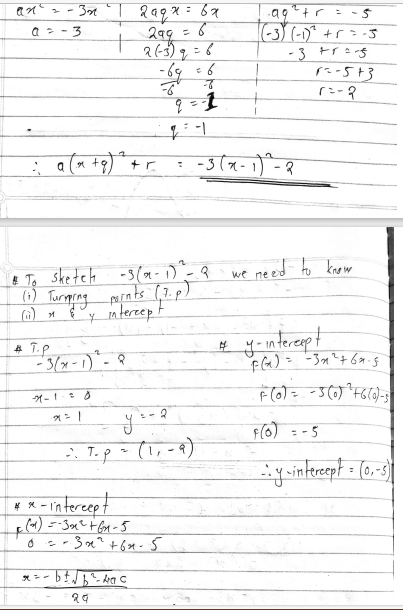 ax² = -3x²
a = -3
2aqx = 6x
2aq = 6
2(-3)q = 6
-6q = 6
-6 -6
q = -1
q = -1
aq² + r = -5
(-3)(-1)² + r = -5
-3 + r = -5
r = -5 + 3
r = -2
∴ a(x+q)² + r = -3(x-1)² - 2
# To sketch -3(x-1)² - 2 we need to know
(i) Turning points (T.p)
(ii) x & y intercept
# T.P
-3(x-1)² - 2
x-1 = 0
x = 1 y = -2
∴ T.p = (1, -2)
# y-intercept
F(x) = -3x² + 6x - 5
F(0) = -3(0)² + 6(0) - 5
F(0) = -5
∴ y-intercept = (0, -5)
# x-intercept
F(x) = -3x² + 6x - 5
0 = -3x² + 6x - 5
x = -b ± √b² - 4ac
2a